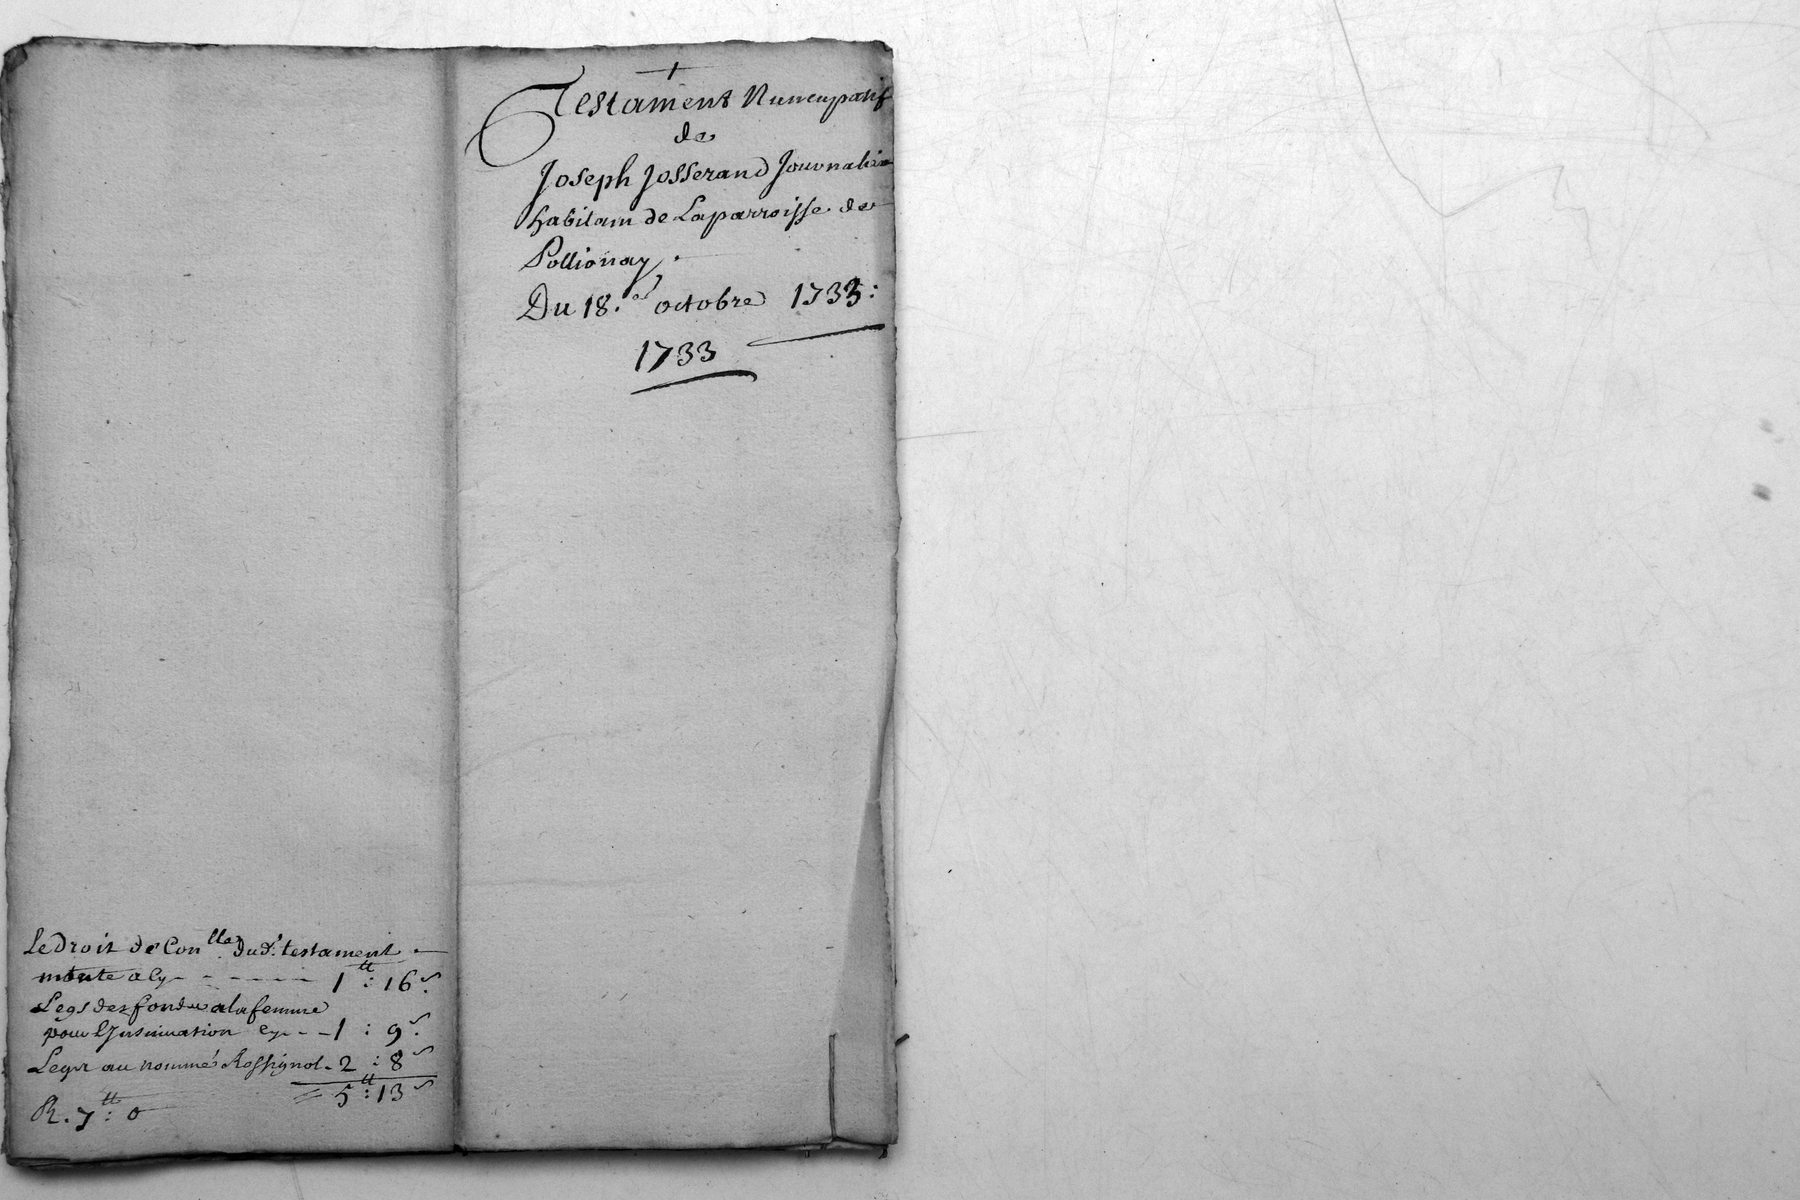 Testament Nuncupatif
de
Joseph Josserand Journalier
habitant de Laparroisse de
Pollionay.
Du 18.e octobre 1733:
1733
Le droit de Con.lle dud.t testament
monte a Cy - - - - - 1tt : 16s.
Legs des fonds a la femme
pour L'Insinuation Cy - - - 1 : 9s.
Legs au nommé Rossignol - 2 : 8s
5tt : 13s
R. 7tt : 0